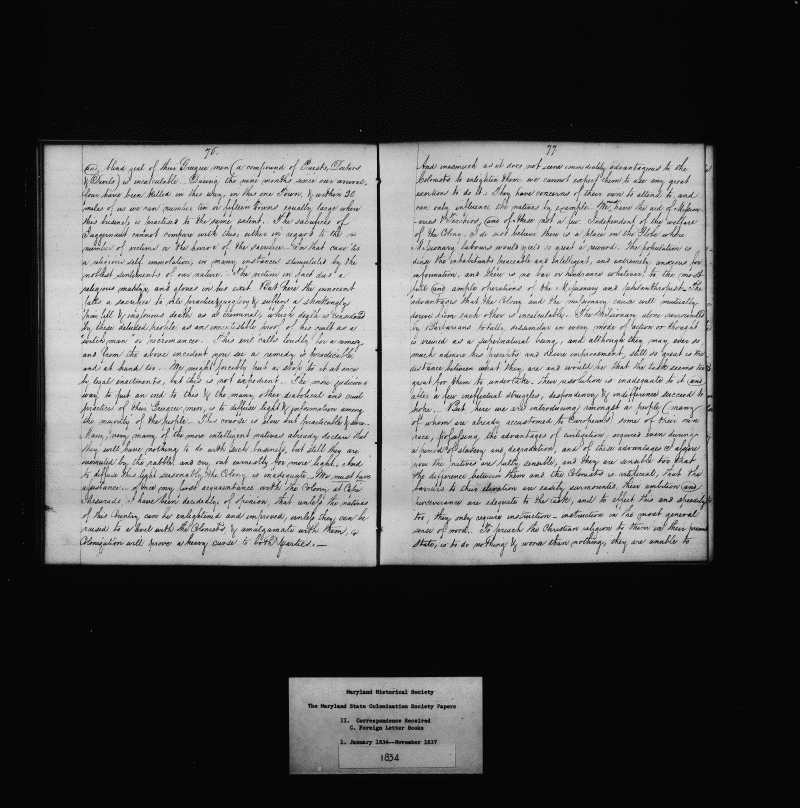 76.
and blind zeal of their Greegree men (a compound of Priests, Doctors
& Devils) is incalculable. During the nine months since our arrival,
four have been killed in this way, in this one Town, & within 30
miles of us we can number ten or fifteen towns equally large where
this business is practised to the same extent. The sacrifices of
Juggernaut cannot compare with this, either in regard to the
number of victims or the horror of the sacrifice. In that case 'tis
a religious self immolation, in many instances stimulated by the
noblest sentiments of our nature. The victim in fact dies a
religious martyr, and glories in his exit. But here the innocent
falls a sacrifice to vile practice & jugglery & suffers a shockingly
painful & inglorious death as a criminal, which death is considered
by these deluded people as an incontestible proof of his guilt as a
witch man or necromancer. This evil calls loudly for a remedy
and from the above incident you see a remedy is practicable,
and at hand too. We might forcibly put a stop to it at once
by legal enactments, but this is not expedient. The more judicious
way to put an end to this & the many other diabolical and cruel
practices of this Greegree men, is to diffuse light & information among
the majority of the people. This course is slow but practicable &
many, very many of the more intelligent natives already declare that
they will have nothing to do with such business, but still they are
overruled by the rabble and cry out earnestly for more light. And
to diffuse this light seasonably, the Colony is inadequate. We must have
assistance. Since my first acquaintance with the Colony at Cape
Messurado I have been decidedly of opinion, that unless the natives
of this Country can be enlightened and improved, unless they can be
raised to a level with the Colonists & amalgamate with them,
Colonization will prove a heavy curse to both parties.
77.
And inasmuch as it does not seem immediately advantageous to the
Colonists to enlighten them, we cannot expect them to use any great
exertions to do it. They have concerns of their own to attend to, and
can only influence the natives by example. We have the aid of Mission-
aries & Teachers, and of these not a few. Independent of the welfare
of the Colony, I do not believe there is a place on the Globe where
Missionary labours would yield so great a reward. The population is
dense the inhabitants peaceable and intelligent, and extremely anxious for
information, and there is no bar or hindrance whatever to the most
full and ample operations of the Missionary and philanthropist. The
advantages that the Colony and the missionary cause will mutually
derive from each other is incalculable. The Missionary alone surrounded
by Barbarians totally dissimilar in every mode of action or thought
is viewed as a supernatural being, and although they may ever so
much admire his precepts and desire improvement, still so great is the
distance between what they are and would be that the task seems too
great for them to undertake. Their resolution is inadequate to it and
after a few ineffectual struggles, despondency & indifference succeed to
hope. But here we are introducing amongst a people (many
of whom are already accustomed to Europeans) some of their own
race, possessing the advantages of civilization, acquired even during
a period of slavery and degradation, and of these advantages I assure
you the natives are fully sensible, and they are sensible too that
the difference between them and the Colonists is artificial, that the
barriers to their elevation are easily surmounted, their ambition and
perseverance are adequate to the task, and to effect this and speedily
too, they only require instruction – instruction in the most general
sense of word. To preach the Christian religion to them in their present
state, is to do nothing & worse than nothing, they are unable to
Maryland Historical Society
The Maryland State Colonization Society Papers
II. Correspondence Received
C. Foreign Letter Books
1. January 1834--November 1837
1834